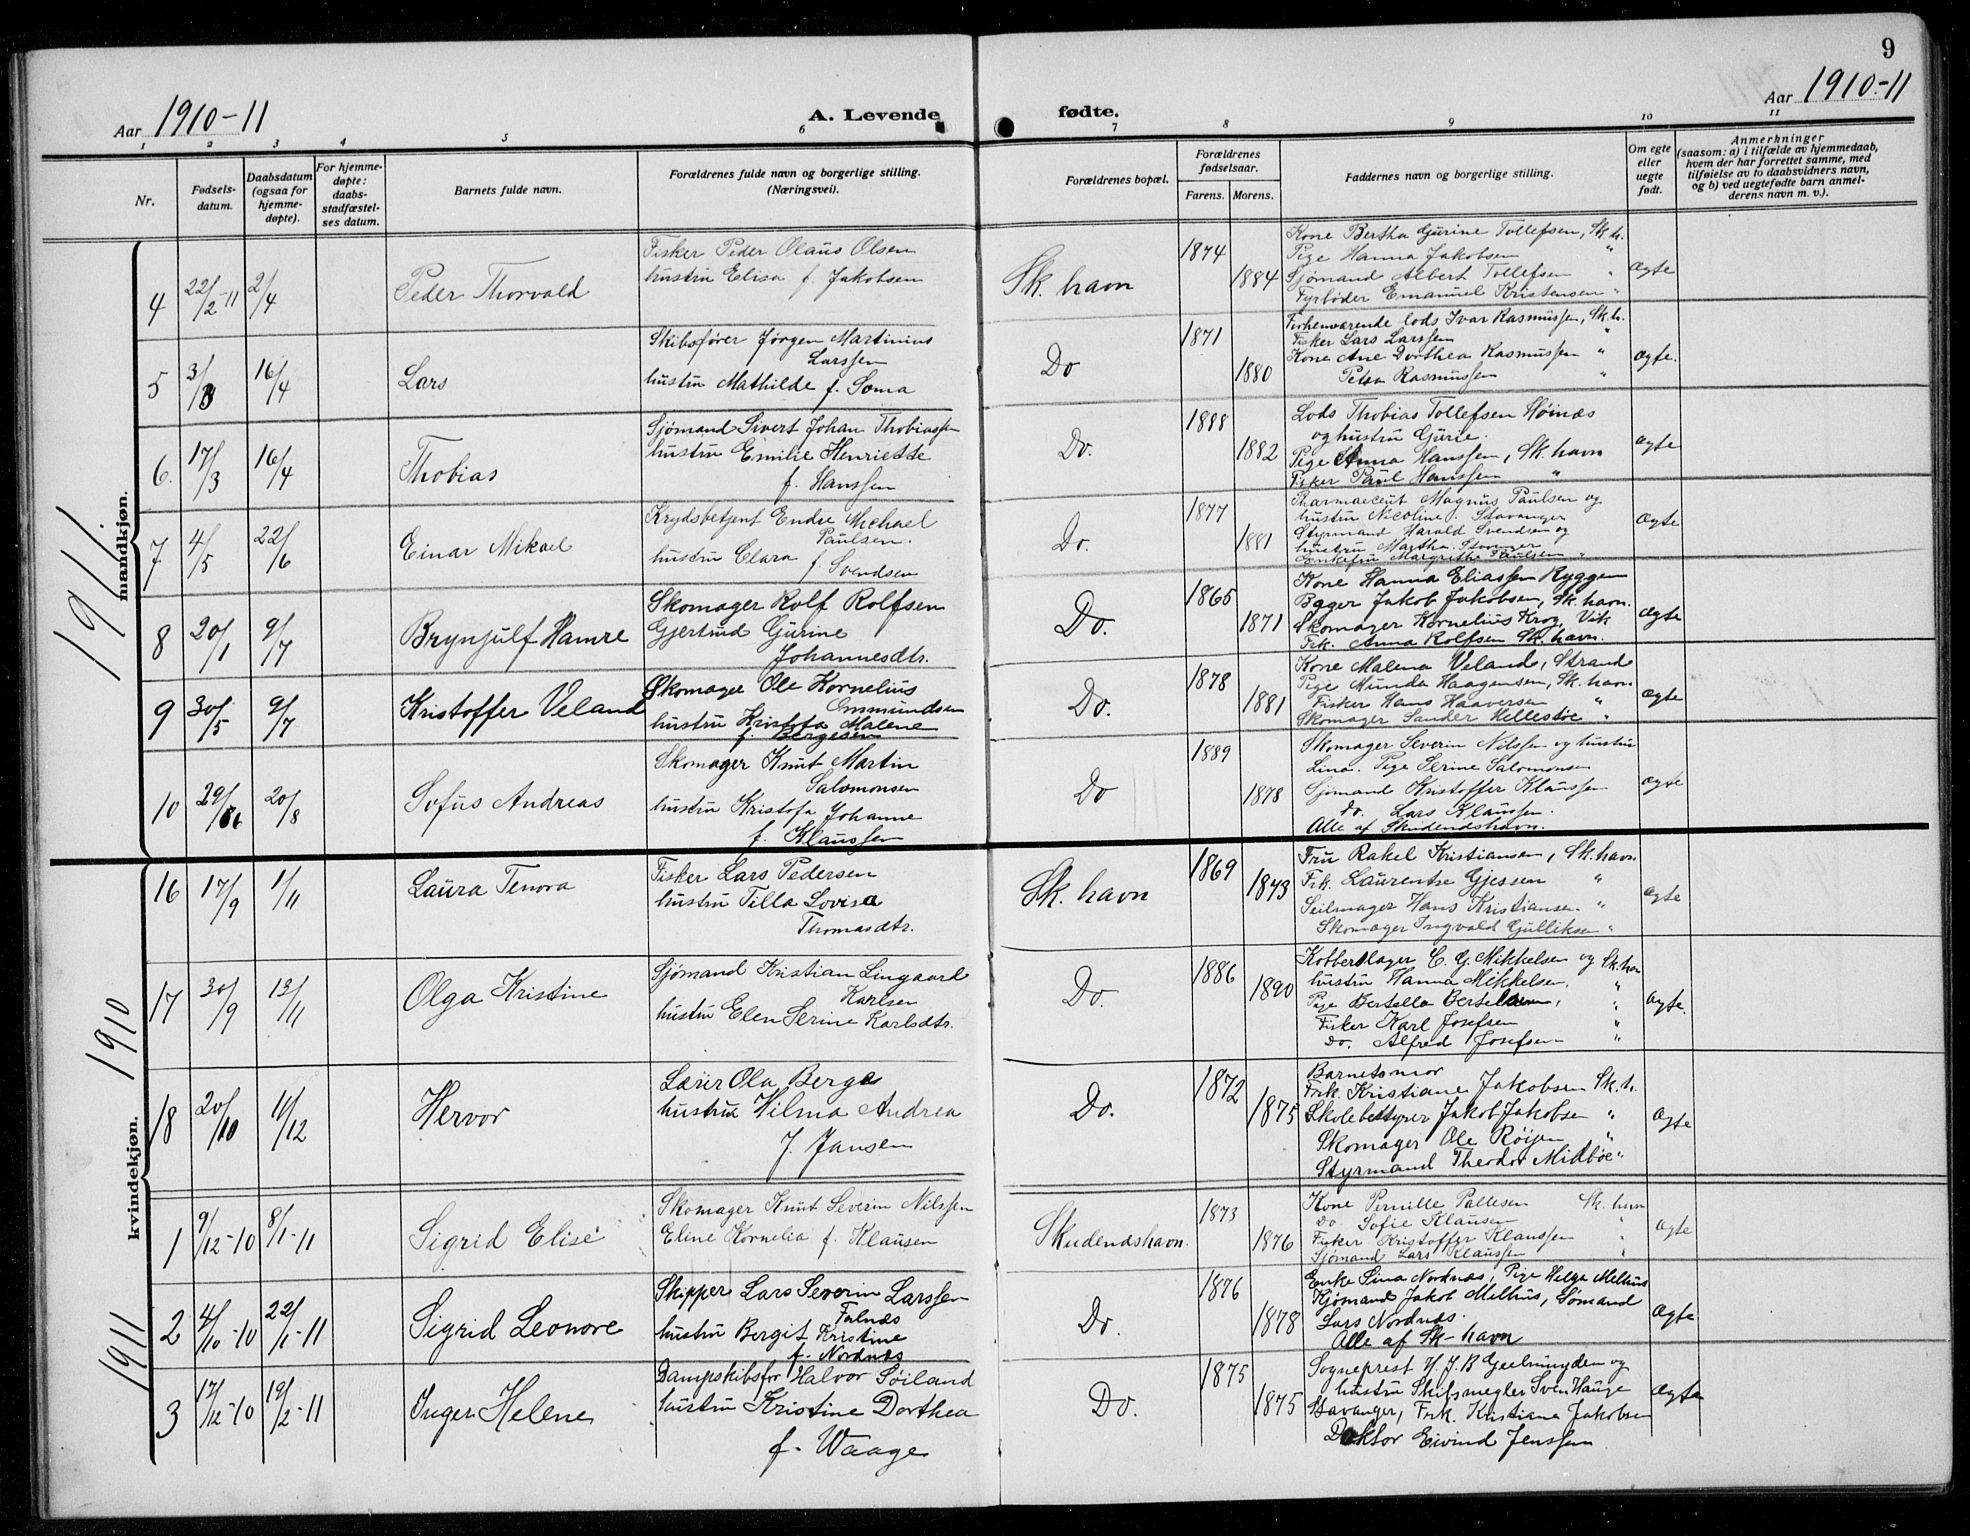 9
Aar 1910-11
A. Levende fødte.
Aar 1910-11
1 2 3 4 5 6 7 8 9 10 11
Nr.
Fødsels-
datum.
Daabsdatum
(ogsaa for
hjemme-
døpte).
For hjemme-
døpte:
daabs-
stadfæstel-
ses datum.
Barnets fulde navn.
Forældrenes fulde navn og borgerlige stilling.
(Næringsvei).
Forældrenes bopæl.
Forældrenes
fødselsaar.
Farens. Morens.
Faddernes navn og borgerlige stilling.
Om egte
eller
uegte
født.
Anmerkninger
(saasom: a) i tilfælde av hjemmedaab,
hvem der har forrettet samme, med
tilføielse av to daabsvidners navn,
og b) ved uegtefødte barn anmel-
derens navn m. v.).
1911.
mandkjøn.
4 22/2-11 2/4 Peder Thorvald
Fisker Peder Olaus Olsen
hustru Elisa f. Jakobsen
Sk. havn 1874 1884
Kone Bertha Gurine Tollefsen, Sk.h.
Pige Hanna Jakobsen "
Sjømand Albert Tollefsen "
Fyrbøder Emanuel Kristensen "
Ægte
5 3/3 16/4 Lars
Skibsfører Jørgen Martinius
Larssen
hustru Mathilde f. Soma
Do 1871 1880
Forhenværende lods Ivar Rasmussen, Sk.h.
Fisker Lars Larssen "
Kone Ane Dorthea Rasmussen "
Petra Rasmussen "
Ægte.
6. 17/3 16/4 Thobias
Sjømand Sivert Johan Thobiassen
hustru Emilie Henriette
f. Hanssen
Do. 1888 1882
Lods Thobias Tollefsen Høinæs
og hustru Gurie.
Pige Anna Hanssen, Sk. havn
Fisker Paul Hanssen "
Ægte
7 4/5 22/6 Einar Mikael
Krydsbetjent Endre Michael
Paulsen.
hustru Clara f. Svendsen
Do. 1877 1881
Pharmaceut Magnus Paulsen og
hustru Nicoline. Stavanger
Styrmand Harald Svendsen og
hustru Martha. Stavanger
Enkefru Margrethe Paulsen "
Ægte
8 20/1 9/7 Brynjulf Hamre
Skomager Rolf Rolfsen
Gjertrud Gurine
Johannesdtr.
Do. 1865 1871
Kone Hanna Eliassen Ryggen
Bager Jakob Jakobsen, Sk. havn.
Skomager Kornelius Krog, Vik
Frk. Anna Rolfsen Sk. havn.
Ægte
9 30/5 9/7 Kristoffer Veland
Skomager Ole Kornelius
Ommundsen
hustru Kristofa Malene
f. Bergesen
Do. 1878 1881
Kone Malena Veland, Strand
Pige Munda Haagensen, Sk. havn
Fisker Hans Haaversen "
Skomager Sander Hellestøe "
Ægte
10 29/6 20/8 Sofus Andreas
Skomager Knut Martin
Salomonsen
hustru Kristofa Johanne
f. Klaussen
Do 1889 1878
Skomager Severin Nilssen og hustru
Lina. Pige Serine Salomonsen
Sjømand Kristoffer Klaussen
do. Lars Klaussen.
Alle af Skudendshavn.
Ægte
1910
kvindekjøn.
16 17/9 1/11 Laura Tenora
Fisker Lars Pedersen
hustru Tilla Lovisa
Thomasdtr.
Sk. havn 1869 1873
Fru Rakel Kristiansen, Sk. havn
Frk. Laurentse Gjessen "
Seilmager Hans Kristiansen "
Skomager Ingvald Gulliksen "
Ægte
17 30/9 13/11 Olga Kristine
Sjømand Kristian Lingaard
Karlsen
hustru Elen Serine Karlsdtr.
Do. 1886 1890
Kobberslager C. G. Mikkelsen og Sk. havn
hustru Hanna Mikkelsen. "
Pige Bertella Bertelsen, "
Fisker Karl Josefsen "
Do. Alfred Josefsen "
Ægte.
18 20/10 11/12 Hervor
Lærer Ola Berge
hustru Hilma Andrea
f. Jansen
Do. 1872 1875
Barnets mor
Frk. Kristiane Jakobsen Sk. h.
Skolebestyrer Jakob Jakobsen "
Skomager Ole Røisen "
Styrmand Theodor Midbøe "
Ægte
1911
1 9/12-10 8/1-11 Sigrid Elise
Skomager Knut Severin Nilssen
Eline Kornelia f. Klausen
Skudendshavn. 1873 1876
Kone Pernille Pallesen Sk. havn
Do. Sofie Klausen "
Fisker Kristoffer Klaussen "
Sjømand Lars Klaussen "
Ægte
2 4/10-10 22/1-11 Sigrid Leonore
Skipper Lars Severin Larssen
Falnæs
hustru Bergit Kristine
f. Nordnæs
Do. 1876 1878
Enke Lina Nordnæs, Pige Helga Melhus
Sjømand Jakob Melhus, Sømand
Lars Nordnæs.
Alle af Sk-havn
Ægte
3 17/12-10 19/2-11 Inger Helene
Dampskibsfør Halvor Soiland
hustru Kristine Dorthea
f. Waage
Do. 1875 1875
Sogneprest H. J. B Geelmuyden og
hustru Skibsmegler Sven Hauge
Stavanger, Frk. Kristiane Jakobsen
Doktor Eivind Jenssen
Ægte